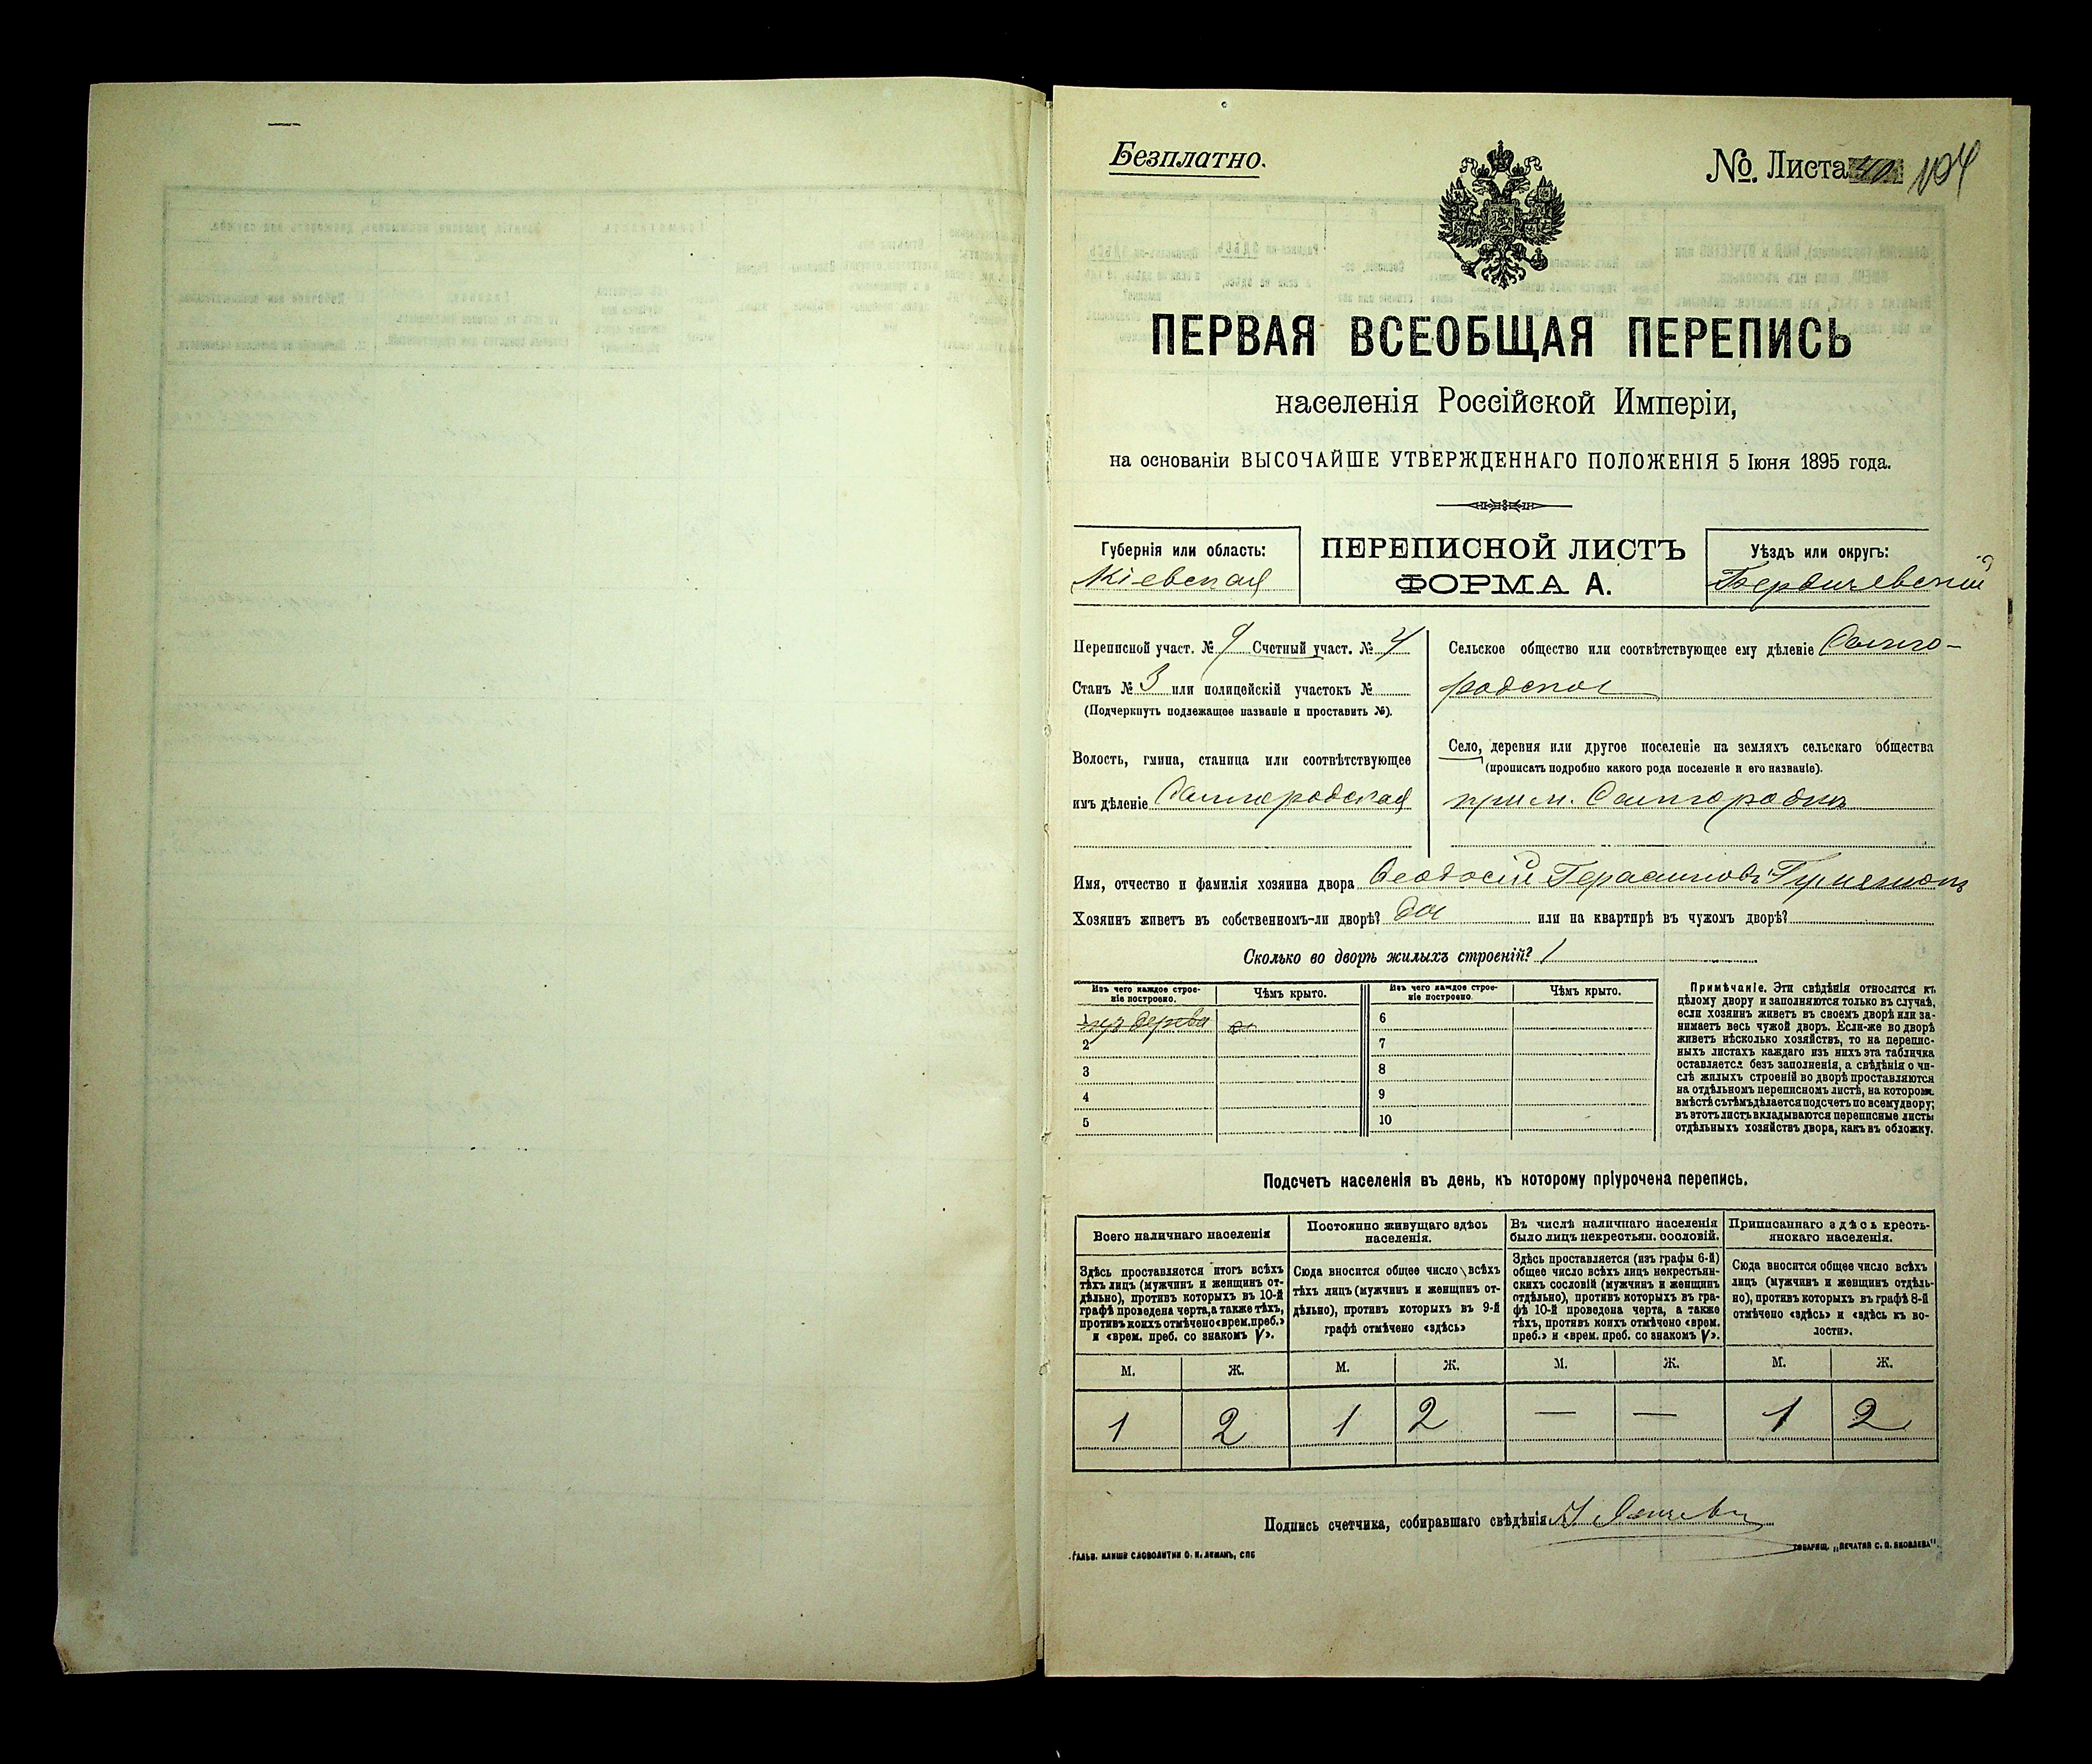 Безплатно.
№. Листа 40 104
ПЕРВАЯ ВСЕОБЩАЯ ПЕРЕПИСЬ
населенія Россійской Имперіи,
на основаніи ВЫСОЧАЙШЕ УТВЕРЖДЕННАГО ПОЛОЖЕНІЯ 5 Іюня 1895 года.
Губернія или область:
Кіевская
ПЕРЕПИСНОЙ ЛИСТЪ
ФОРМА А.
Уѣздъ или округъ:
Бердичевскій
Переписной участ. № 9 Счетный участ. № 4
Станъ № 3 или полицейскій участокъ №
(Подчеркнуть подлежащее названіе и проставить №).
Волость, гмина, станица или соотвѣтствующее
имъ дѣленіе Самгородская
Сельское общество или соотвѣтствующее ему дѣленіе Самго-
родское
Село, деревня или другое поселеніе на земляхъ сельскаго общества
(прописать подробно какого рода поселеніе и его названіе).
при м. Самгородкѣ
Имя, отчество и фамилія хозяина двора Ѳеодосій Герасимовъ
Хозяинъ живетъ въ собственномъ-ли дворѣ? да или на квартирѣ въ чужомъ дворѣ?
Сколько во дворѣ жилыхъ строеній? 1
Изъ чего каждое строе-
ніе построено.
Чѣмъ крыто.
Изъ чего каждое строе-
ніе построено.
Чѣмъ крыто.
1 изъ дерева
2
3
4
5
6
7
8
9
10
Примѣчаніе. Эти свѣдѣнія относятся къ
цѣлому двору и заполняются только въ случаѣ,
если хозяинъ живетъ въ своемъ дворѣ или за-
нимаетъ весь чужой дворъ. Если-же во дворѣ
живетъ нѣсколько хозяйствъ, то на перепис-
ныхъ листахъ каждаго изъ нихъ эта табличка
оставляется безъ заполненія, а свѣдѣнія о чи-
слѣ жилыхъ строеній во дворѣ проставляются
на отдѣльномъ переписномъ листѣ, на которомъ
вмѣстѣ съ тѣмъ дѣлается подсчетъ по всему двору;
въ этотъ листъ вкладываются переписные листы
отдѣльныхъ хозяйствъ двора, какъ въ обложку.
Подсчетъ населенія въ день, къ которому пріурочена перепись.
Всего наличнаго населенія
Здѣсь проставляется итогъ всѣхъ
тѣхъ лицъ (мужчинъ и женщинъ от-
дѣльно), противъ которыхъ въ 10-й
графѣ проведена черта, а также тѣхъ,
противъ коихъ отмѣчено «врем. преб.»
и «врем. преб. со знакомъ V».
Постоянно живущаго здѣсь
населенія.
Сюда вносится общее число всѣхъ
тѣхъ лицъ (мужчинъ и женщинъ от-
дѣльно), противъ которыхъ въ 9-й
графѣ отмѣчено «здѣсь»
Въ числѣ наличнаго населенія
было лицъ некрестьян. сословій.
Здѣсь проставляется (изъ графы 6-й)
общее число всѣхъ лицъ некрестьян-
скихъ сословій (мужчинъ и женщинъ
отдѣльно), противъ которыхъ въ гра-
фѣ 10-й проведена черта, а также
тѣхъ, противъ коихъ отмѣчено «врем.
преб.» и «врем. преб. со знакомъ V».
Приписаннаго здѣсь кресть-
янскаго населенія.
Сюда вносится общее число всѣхъ
лицъ (мужчинъ и женщинъ отдѣль-
но), противъ которыхъ въ графѣ 8-й
отмѣчено «здѣсь» и «здѣсь къ во-
лости».
М. Ж. М. Ж. М. Ж. М. Ж.
1 2 1 2 — — 1 2
Подпись счетчика, собиравшаго свѣдѣнія
ГАЛЬВ. КЛИШЕ СЛОВОЛИТНИ О. И. ЛЕМАНЪ, СПБ
ТОВАРИЩ. „ПЕЧАТНЯ С. П. ЯКОВЛЕВА".